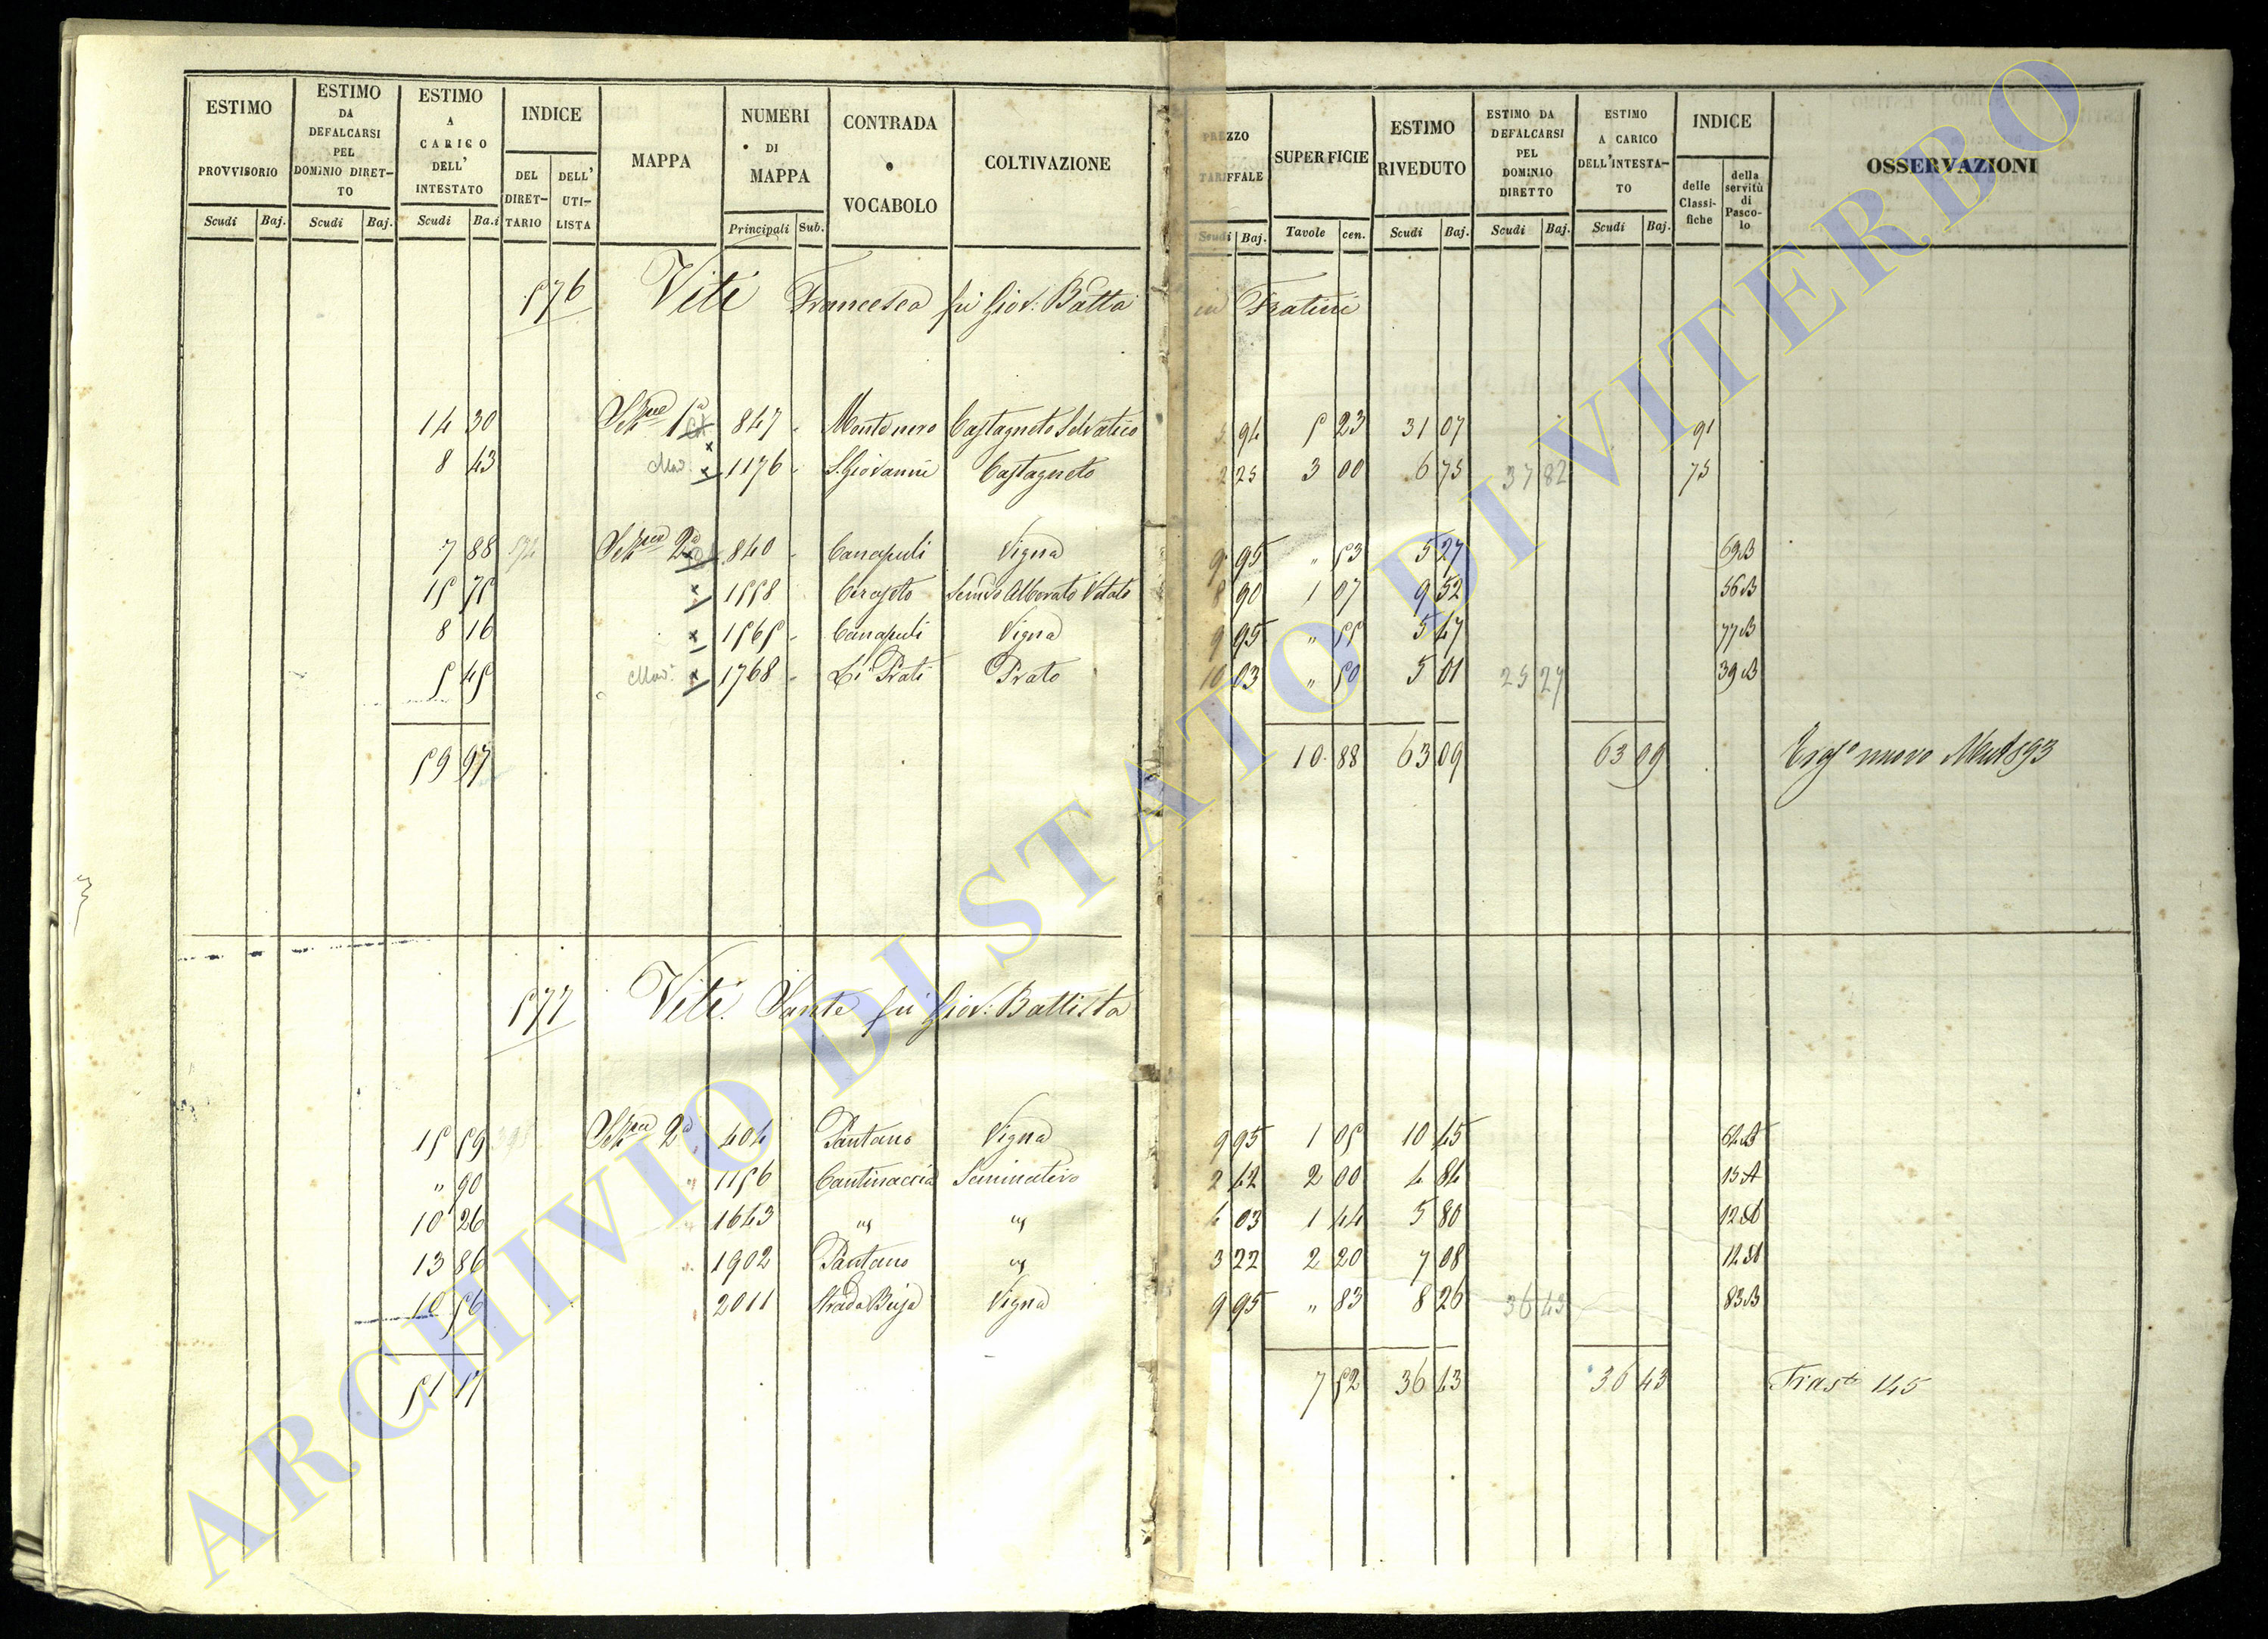 ESTIMO PROVVISORIO
ESTIMO DA DEFALCARSI PEL DOMINIO DIRET-TO
ESTIMO A CARICO DELL' INTESTATO
INDICE
DEL DIRET-TARIO
DELL' UTI-LISTA
MAPPA
NUMERI DI MAPPA
CONTRADA o VOCABOLO
COLTIVAZIONE
PREZZO TARIFFALE
SUPERFICIE
ESTIMO RIVEDUTO
ESTIMO DA DEFALCARSI PEL DOMINIO DIRETTO
ESTIMO A CARICO DELL'INTESTA-TO
INDICE
delle Classi-fiche
della servitù di Pasco-lo
OSSERVAZIONI
Scudi Baj. Scudi Baj. Scudi Ba.i Principali Sub. Scudi Baj. Tavole cen. Scudi Baj. Scudi Baj. Scudi Baj.
576 Viti Francesca fu Giov: Batta in Fratini
14 30 1a 847 Montenero Castagneto Selvatico 5 94 5 23 31 07 91
8 43 1176 S. Giovanni Castagneto 2 25 3 00 6 75 37 82 75
7 88 574 2a 840 Canapuli Vigna 9 95 " 53 5 27 69 B
15 75 1558 Ceraseto Semvo Alborato Vitato 8 90 1 07 9 52 56 B
8 16 1565 Canapuli Vigna 9 95 " 55 5 47 77 B
5 45 1768 Li Prati Prato 10 03 " 50 5 01 25 27 39 B
59 97 10 88 63 09 63 09 nuovo
577 Viti Sante fu Giov: Battista
15 59 2a 404 Pantano Vigna 9 95 1 05 10 45 64 B
" 90 1156 Cantinaccia Seminativo 2 42 2 00 4 84 13 A
10 26 1643 " " 4 03 1 44 5 80 12 A
13 86 1902 Pantano " 3 22 2 20 7 08 14 A
10 56 2011 Strada Buja Vigna 9 95 " 83 8 26 36 43 83 B
51 17 7 52 36 43 36 43 Trasto 145
ARCHIVIO DI STATO DI VITERBO